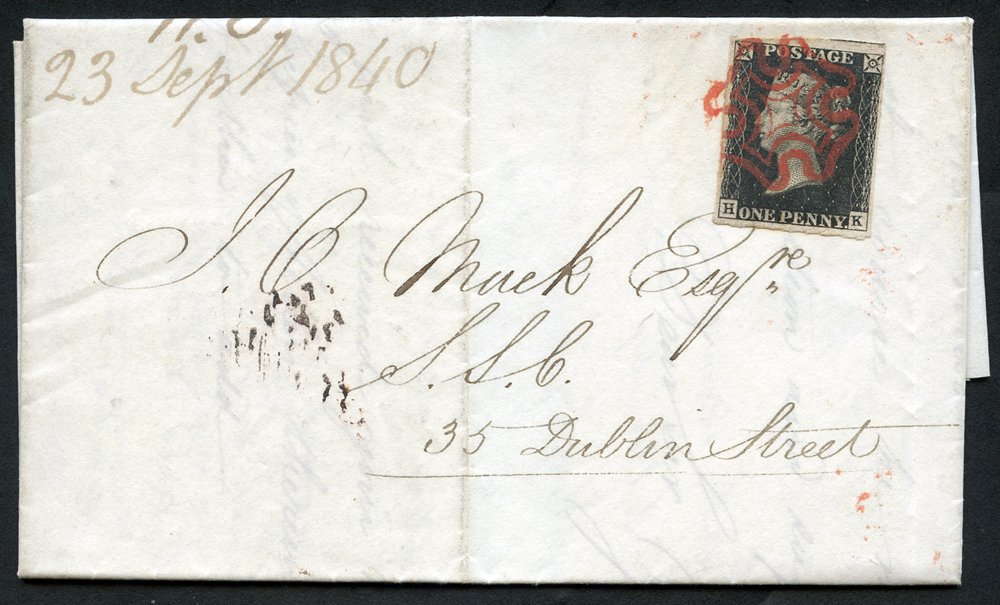 23 Sept 1840
POSTAGE
ONE PENNY
H K
J. C. Muck Esqre
S.S.C.
35 Dublin Street